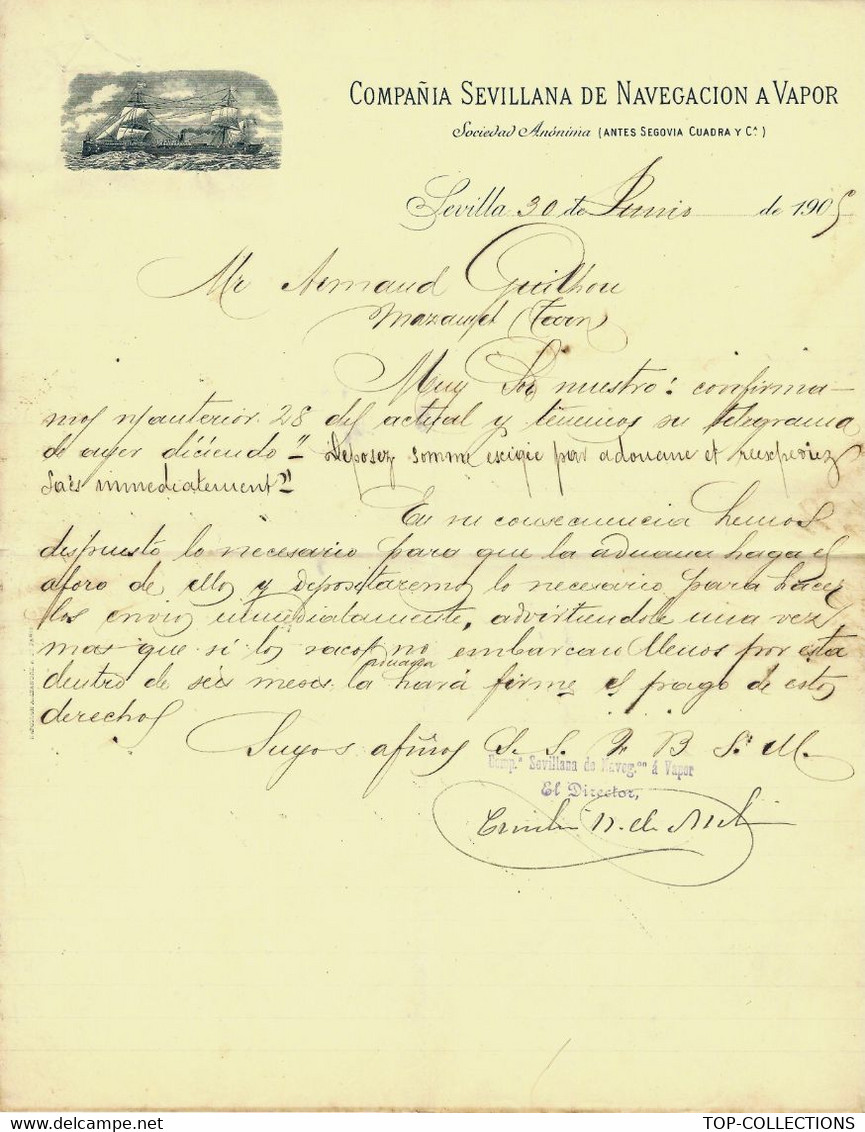 COMPAÑIA SEVILLANA DE NAVEGACION A VAPOR
Sociedad Anónima (ANTES SEGOVIA CUADRA Y Cª)
Sevilla 30 de Junio de 1905
Mr Armand Guilhou
Mazamet (Tarn)
Muy Sor nuestro: confirma-
mos n/anterior 28 del actual y tenemos su telegrama
de ayer diciendo "Deposez somme exigie par adouane et reexpediez
sacs immediatement"
En su consecuencia hemos
dispuesto lo necesario para que la aduana haga el
aforo de ellos y depositaremos lo necesario para hacer
los envios inmediatamente, advirtiendole una vez
mas que si los sacos no embarcan llenos por esta
dentro de seis meses la aduana hará firme el pago de estos
derechos
Suyos afmos S. S. Q. B. S. M.
Comp.ª Sevillana de Naveg.on á Vapor
El Director,
TOP-COLLECTIONS